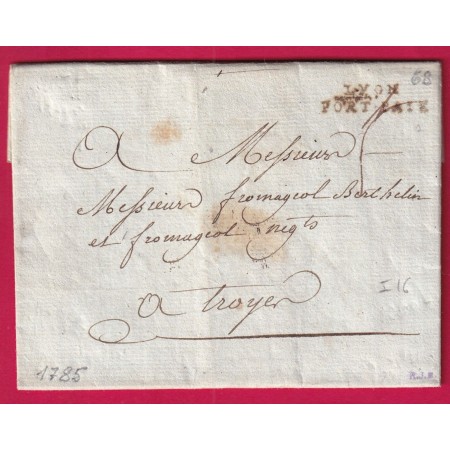 68
LYON
PORT PAYE
A Messieur
Messieur fromageol Berthelin
et fromageol negts
A troyes
I 16
1785